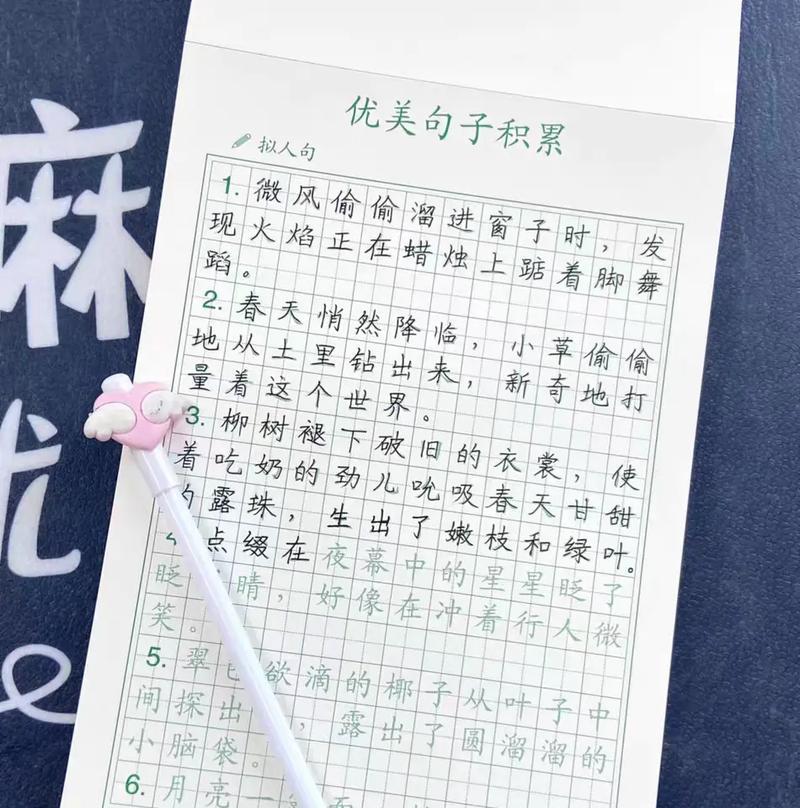 优美句子积累
拟人句
1. 微风偷偷溜进窗子时，发
现火焰正在蜡烛上踮着脚舞
蹈。
2. 春天悄然降临，小草偷偷
地从土里钻出来，新奇地打
量着这个世界。
3. 柳树褪下破旧的衣裳，使
着吃奶的劲儿吮吸春天甘甜
露珠，生出了嫩枝和绿叶。
点缀在夜幕中的星星眨了
眨 睛，好像在冲着行人微
笑。
5. 翠 欲滴的椰子从叶子中
间探出 ，露出了圆溜溜的
小脑袋。
6. 月亮一
麻
优